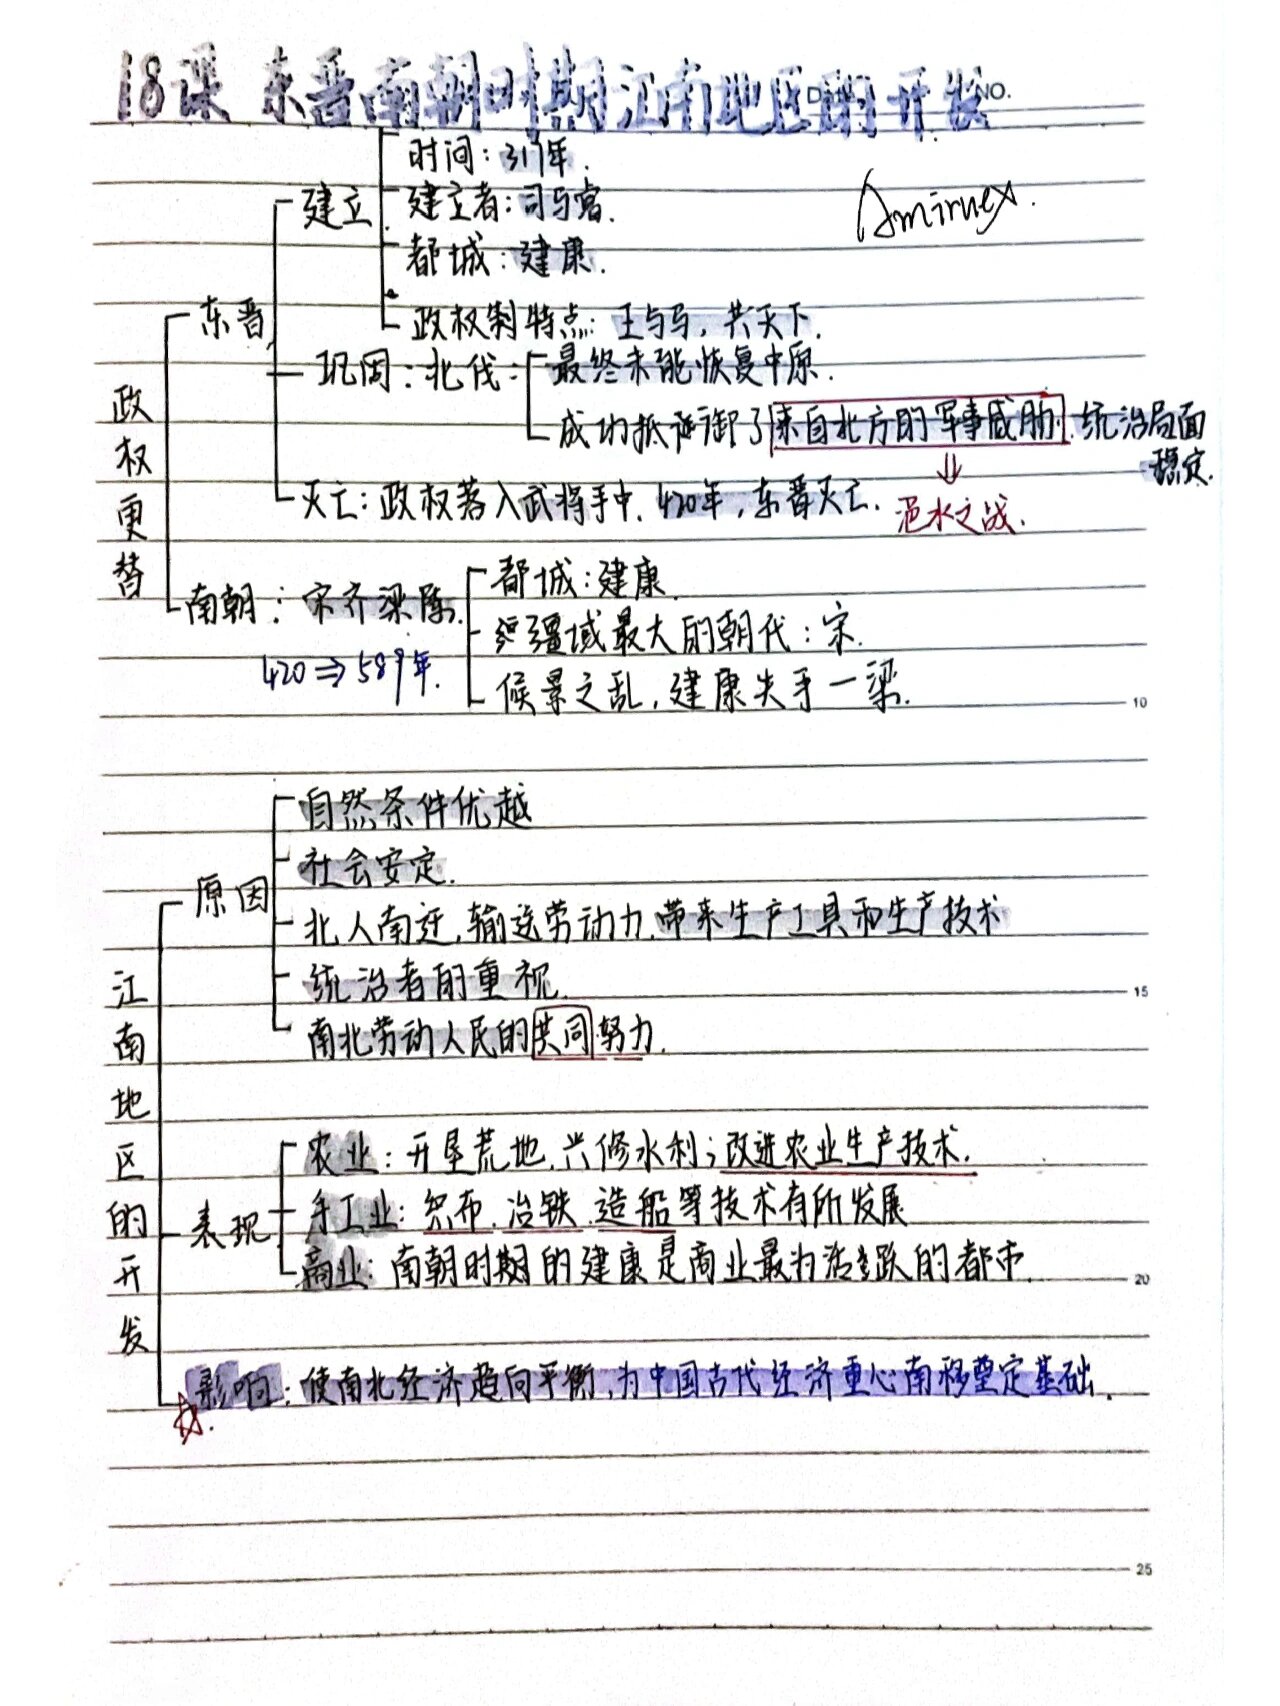 18课 东晋南朝时期江南地区的开发
NO.
时间：317年.
Amiruex.
建立
建立者：司马睿.
都城：建康.
东晋
政权制特点：王与马，共天下.
巩固：北伐：
最终未能恢复中原.
成功抵御了来自北方的军事威胁.统治局面
稳定.
灭亡：政权落入武将手中.420年，东晋灭亡.
淝水之战.
政权更替
南朝：宋齐梁陈.
420⇒589年.
都城：建康.
疆域最大的朝代：宋.
候景之乱，建康失手一梁.
10
自然条件优越
社会安定.
原因
北人南迁，输送劳动力.带来生产工具和生产技术
统治者的重视.
15
南北劳动人民的共同努力.
江南地区的开发
农业：开垦荒地.兴修水利；改进农业生产技术.
表现
手工业：织布.冶铁.造船等技术有所发展
商业：南朝时期的建康是商业最为活跃的都市.
20
影响：使南北经济趋向平衡，为中国古代经济重心南移奠定基础.
25